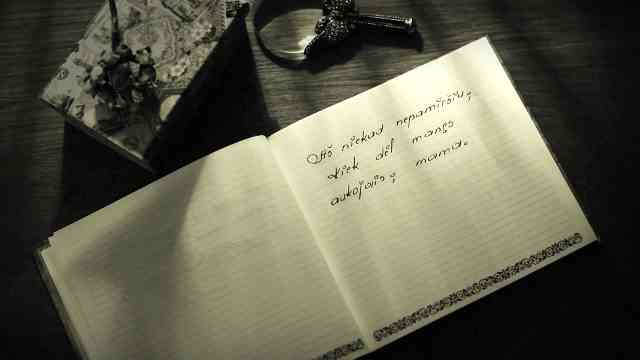 Aš niekad nepamiršiu,
kiek dėl manęs
aukojais, mama.